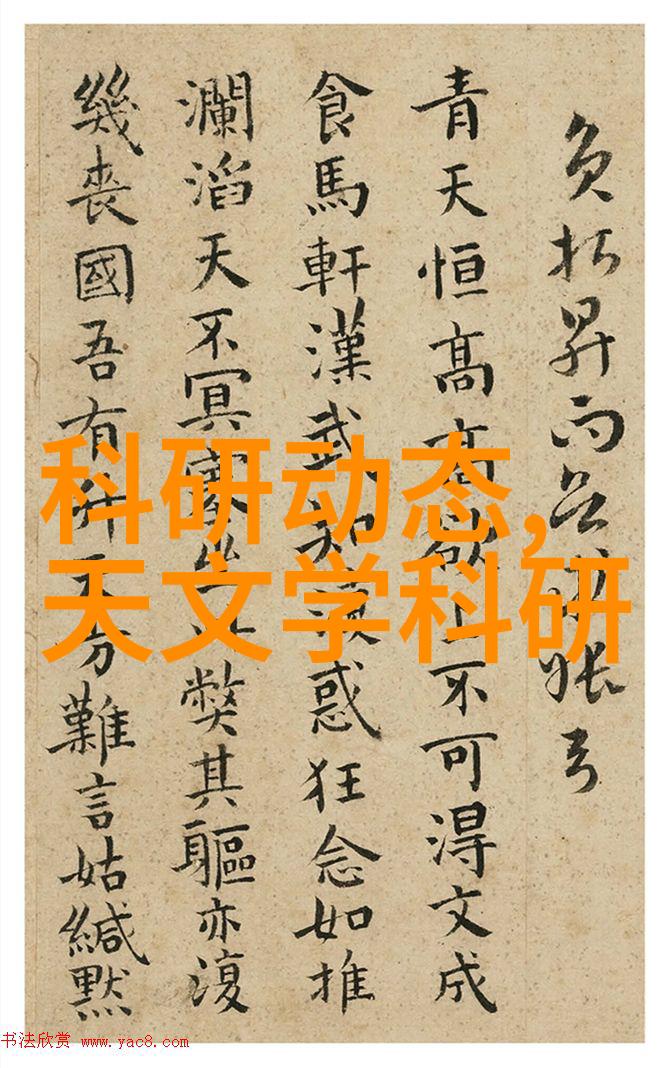 昇而
青天恒高高欲上不可淂文成
食馬軒漢武惑狂念如推
瀾滔天不冥弊其軀亦澓
幾喪國吾有難言姑緘默
科研动态,
天文学科研
书法欣赏 www.yac8.com